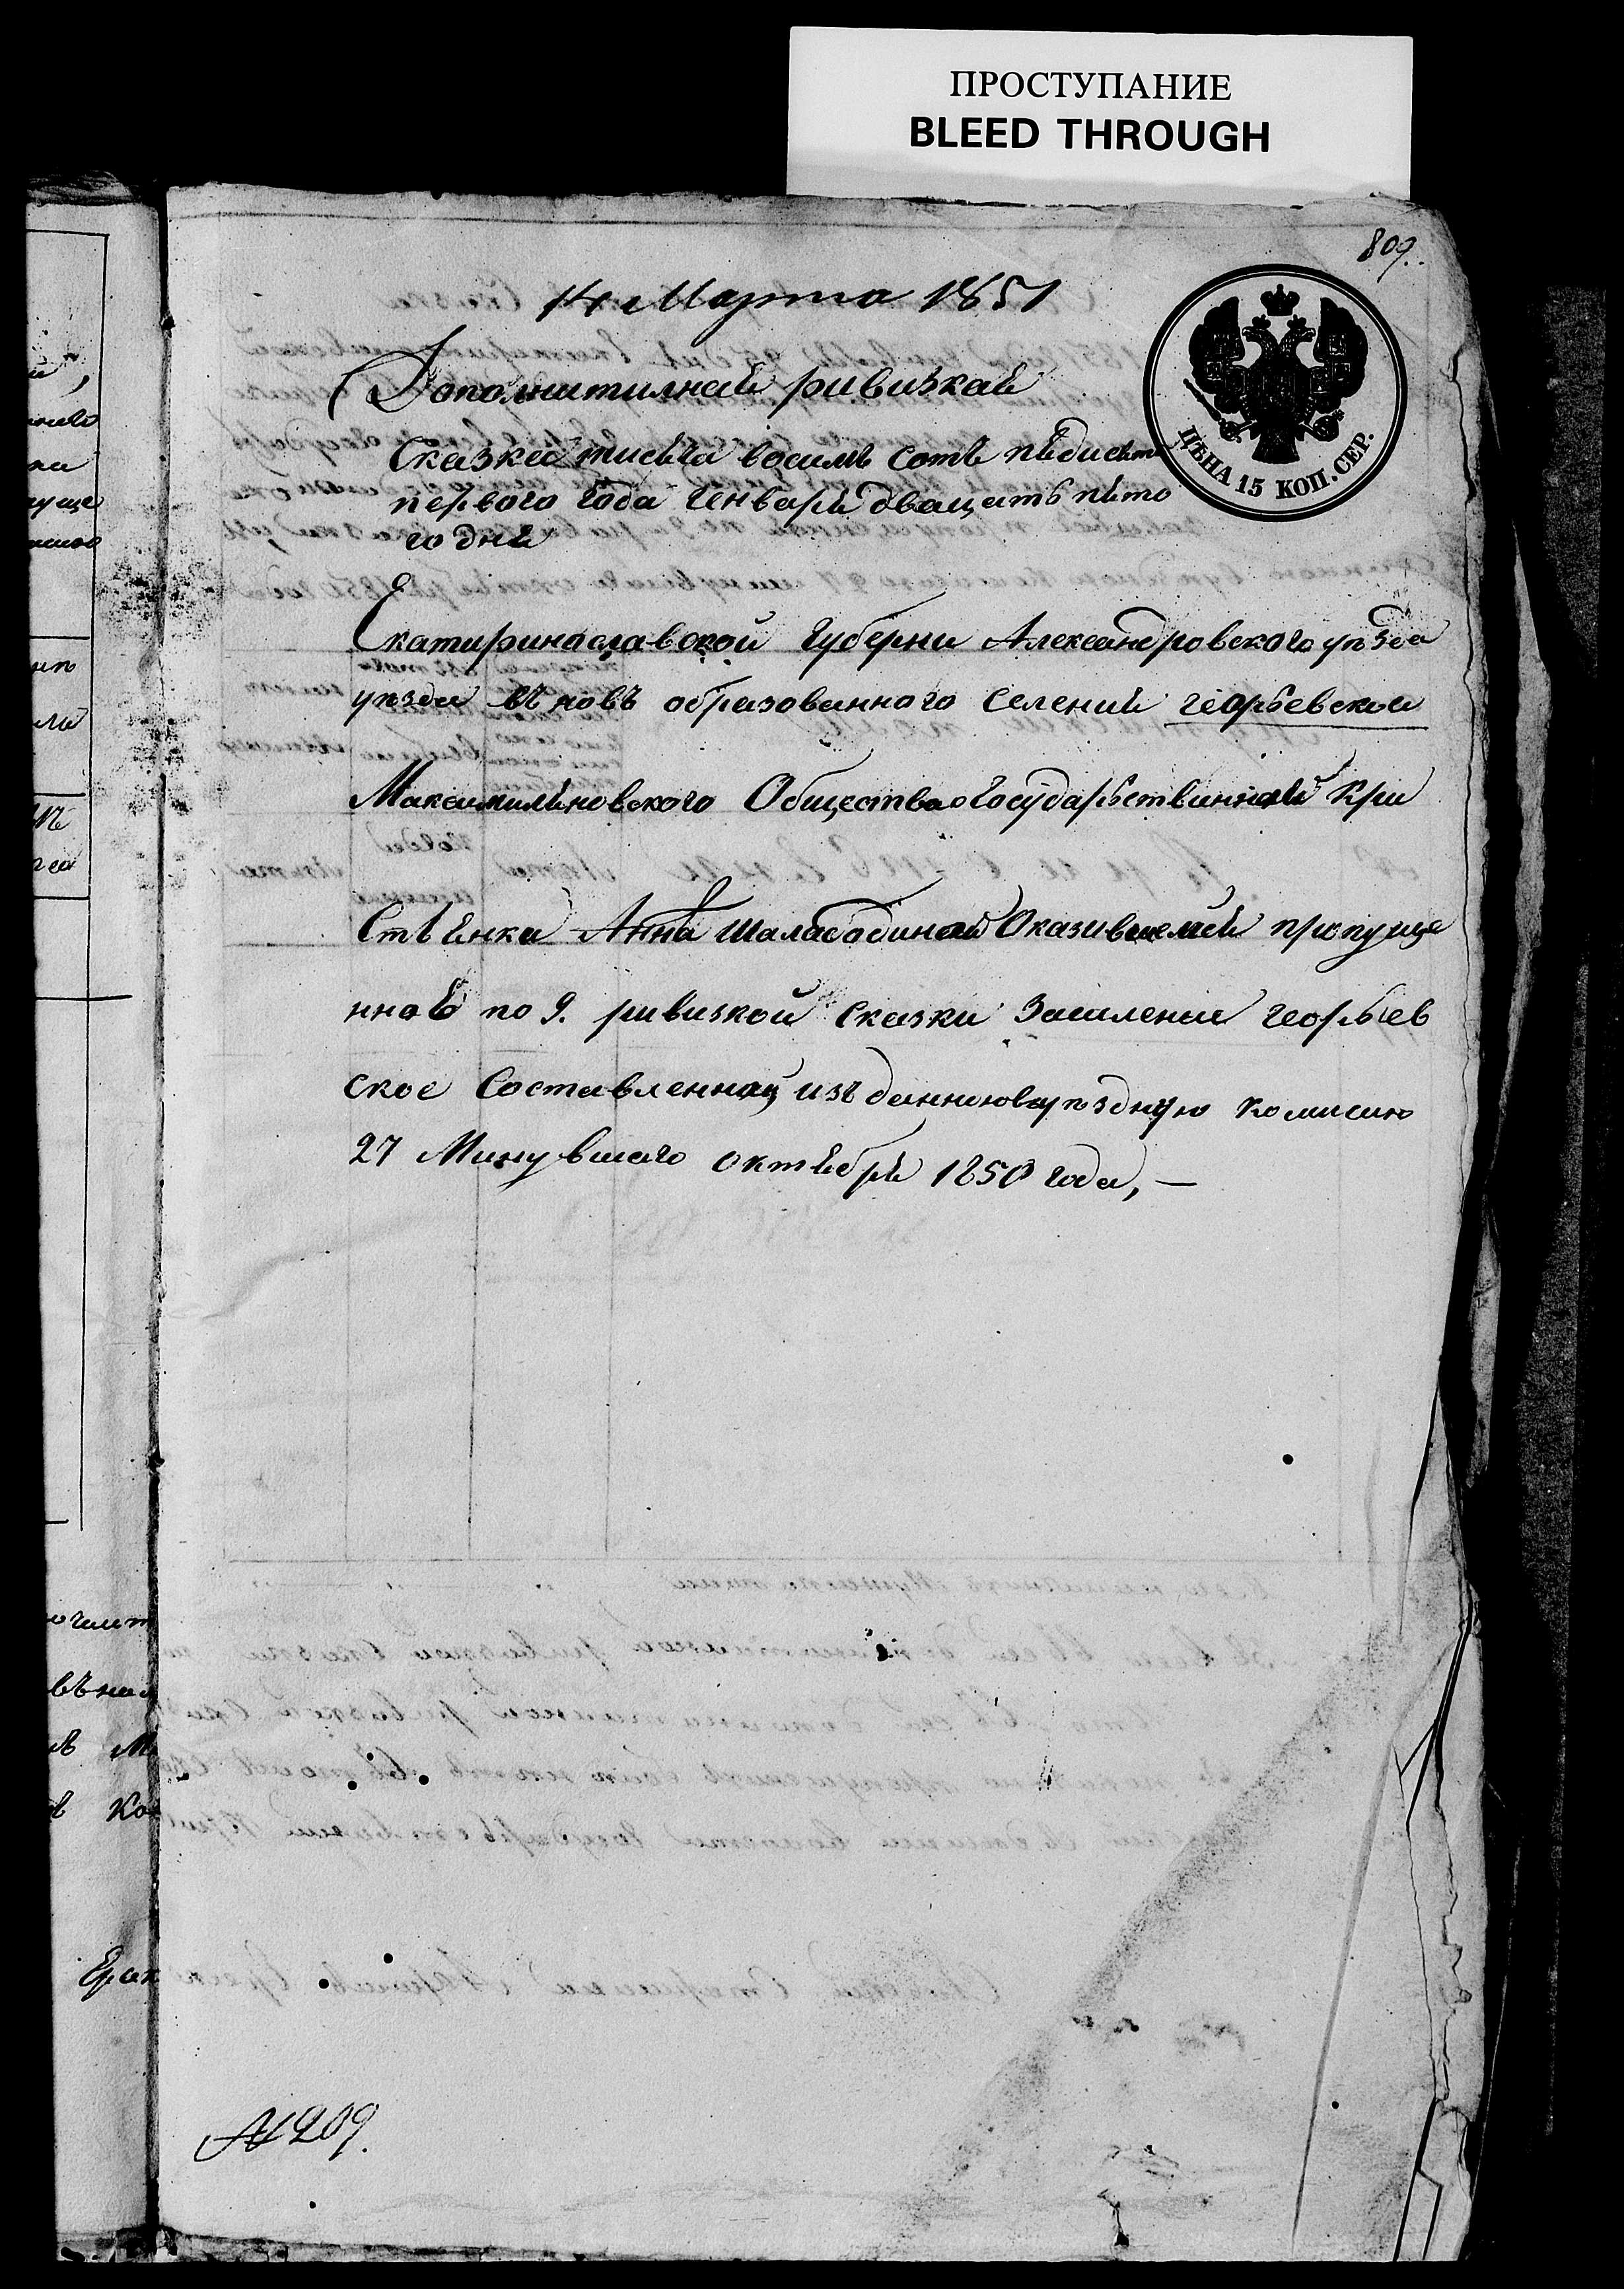 ПРОСТУПАНИЕ
BLEED THROUGH
809.
14 Марта 1851
ЦѢНА 15 КОП. СЕР.
Дополнитилная ривизкая
Сказка тисяча восимъ сотъ пядисятъ
первого года Генваря дващать пято
го дня
Екатиринославской Губерни Александровского уѣзда
уѣзда въ новь образованного селения георьевская
Максимиляновского Общества Государьствинная Кри
стьянка Анна Шалабодиная Оказившеяся пропуще
нною по 9. ривизкой сказки засиление георьев
ское Составленной изъ данною уѣздную комисию
27 Минувшаго октября 1850 года, —
№ 209.